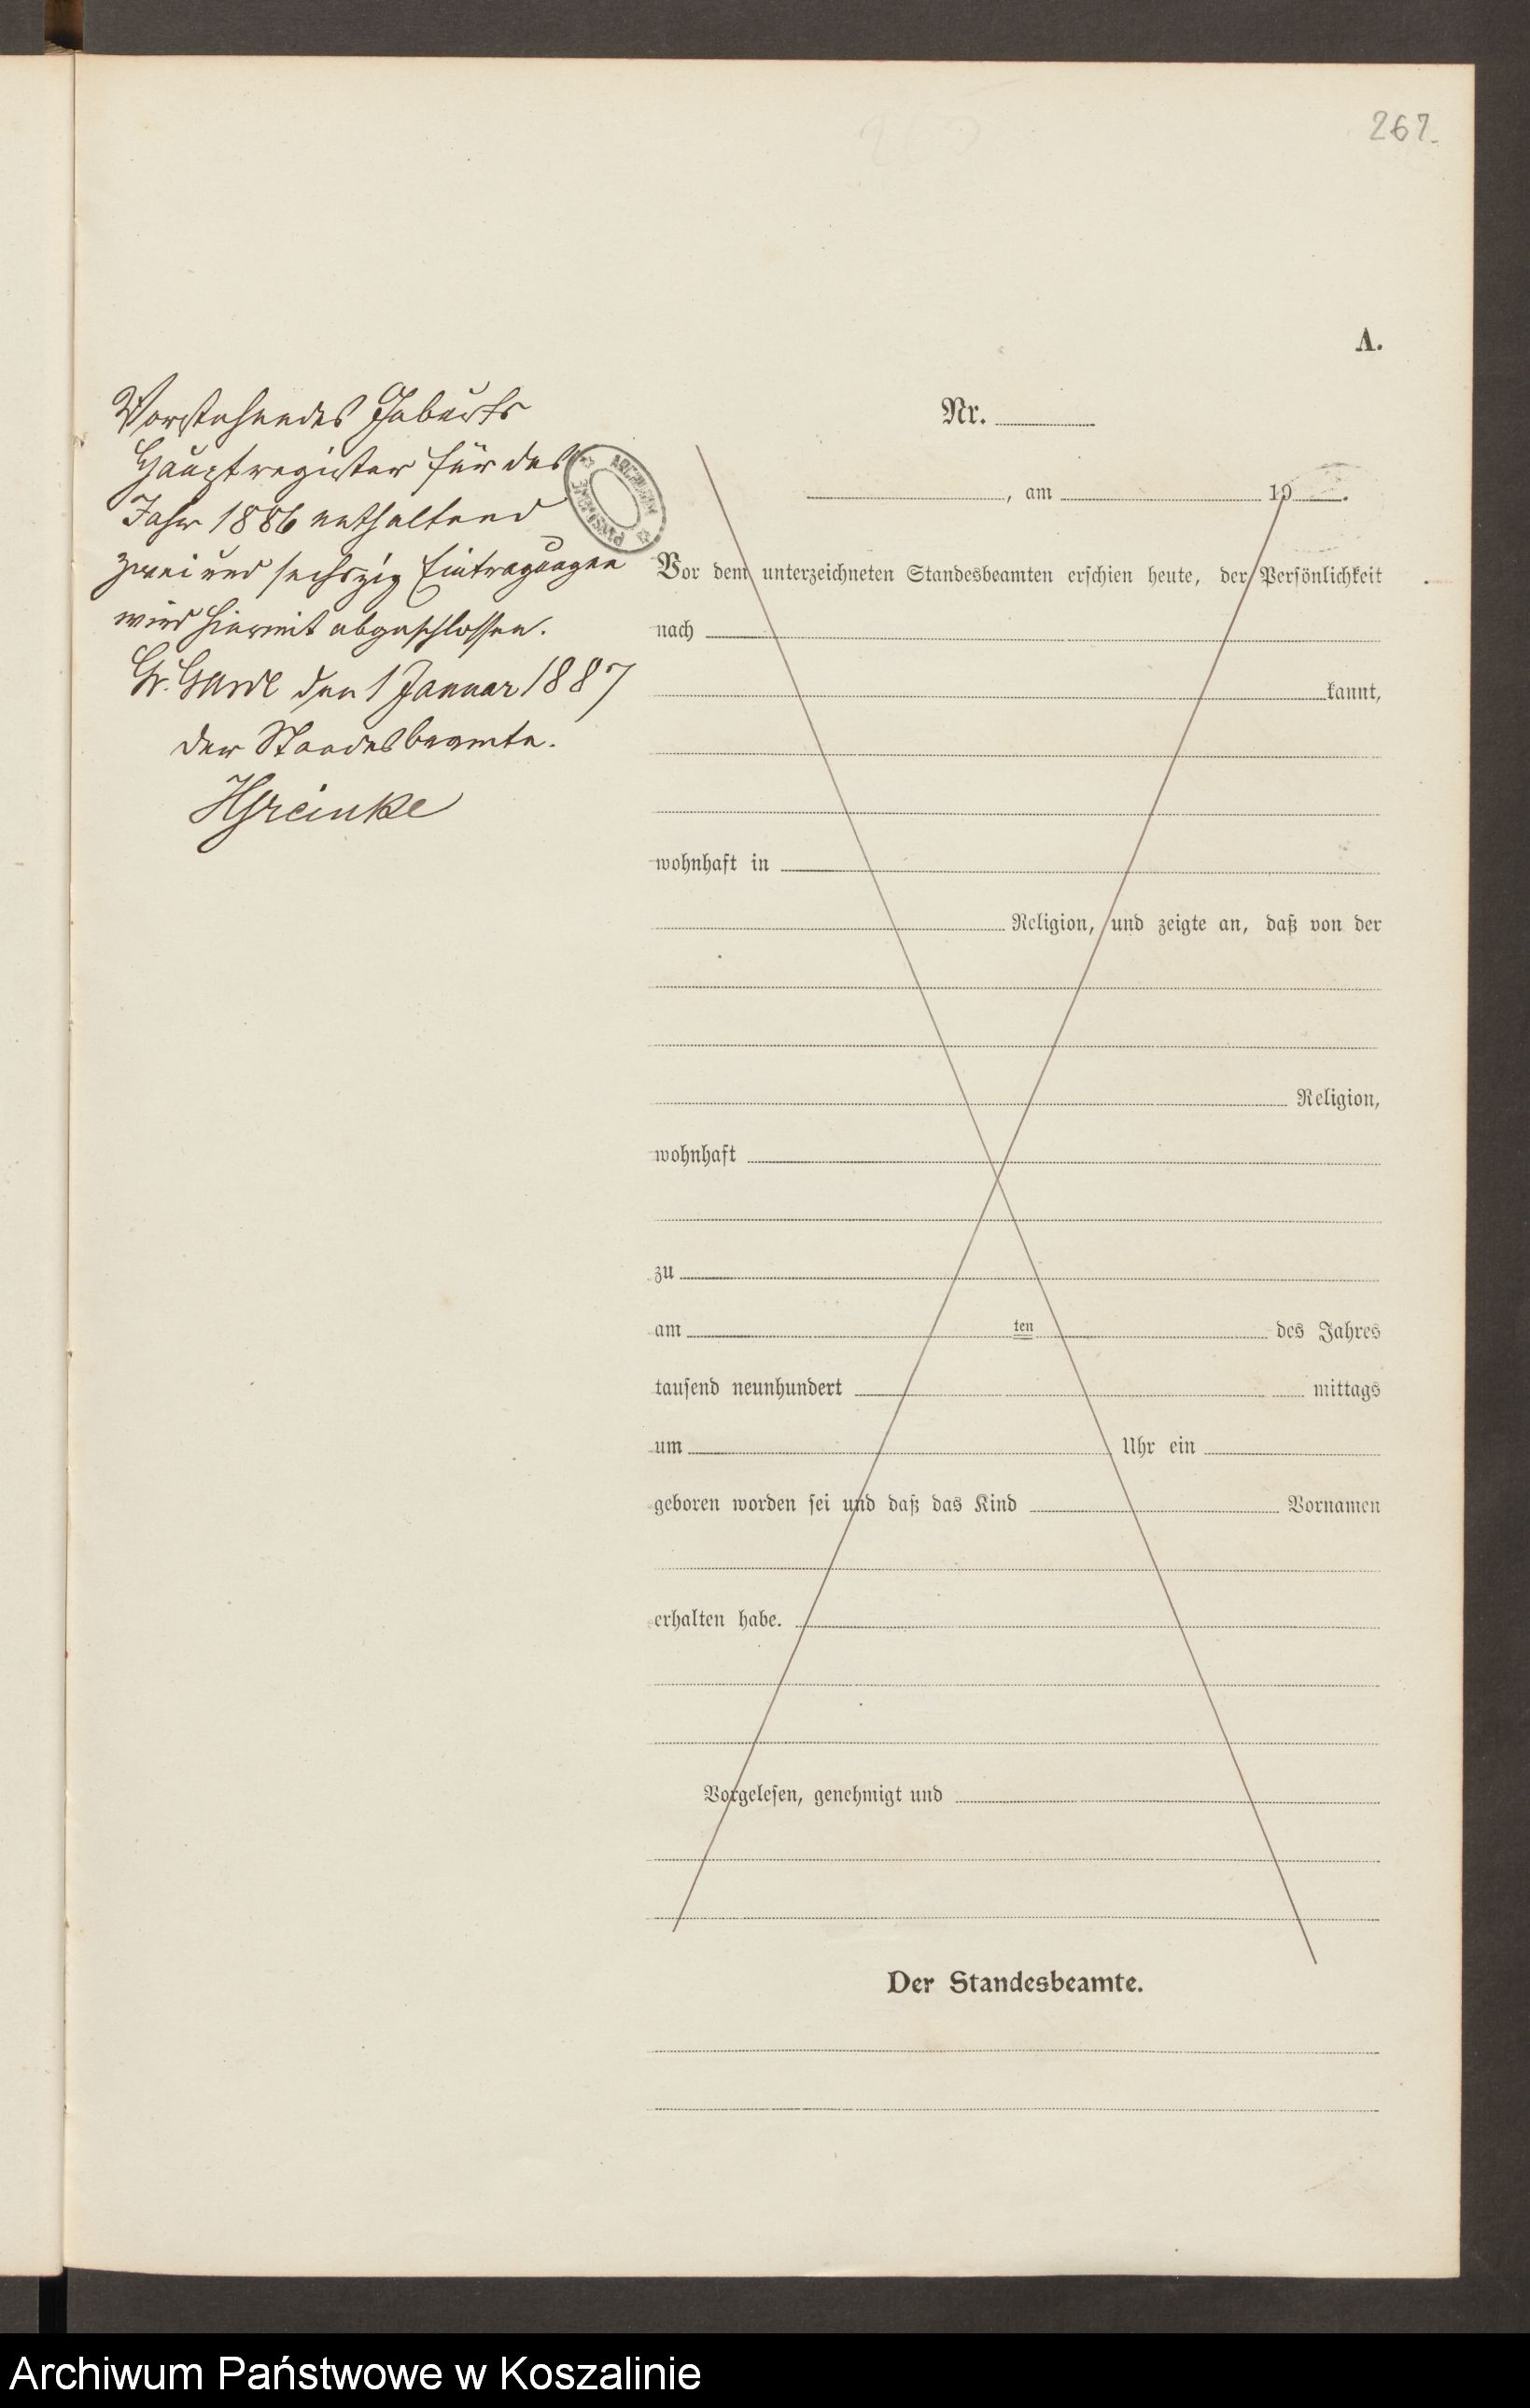 267.
A.
Vorstehendes Geburts
Hauptregister für das
Jahr 1886 enthaltend
zwei und sechszig Eintragungen
wird hiermit abgeschlossen.
Gr. Garde den 1 Januar 1887
der Standesbeamte.
ARCHIWUM PAŃSTWOWE
Nr.
, am 19 .
Vor dem unterzeichneten Standesbeamten erschien heute, der Persönlichkeit
nach
kannt,
wohnhaft in
Religion, und zeigte an, daß von der
Religion,
wohnhaft
zu
am ten des Jahres
tausend neunhundert mittags
um Uhr ein
geboren worden sei und daß das Kind Vornamen
erhalten habe.
Vorgelesen, genehmigt und
Der Standesbeamte.
Archiwum Państwowe w Koszalinie